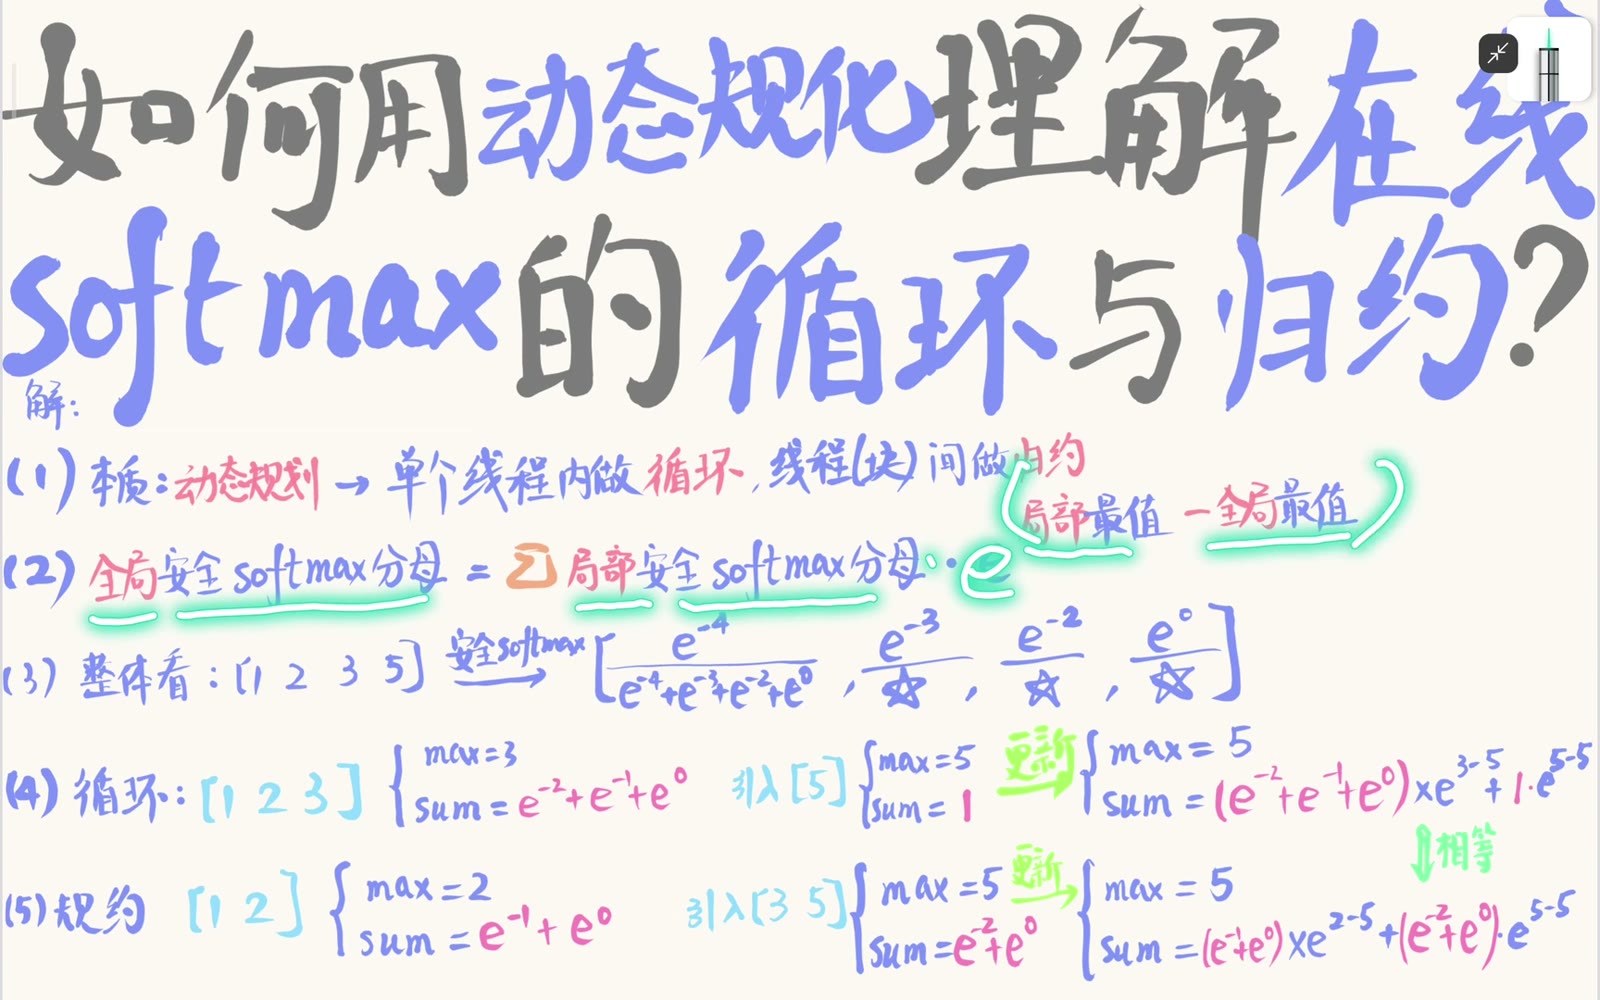 如何用动态规化理解在线
softmax的循环与归约?
解:
(1) 本质:动态规划 → 单个线程内做循环,线程(块)间做归约
(2) 全局安全softmax分母 = Σ 局部安全softmax分母 · e^(局部最值 - 全局最值)
(3) 整体看: [1 2 3 5] 安全softmax→ [e^-4/(e^-4+e^-3+e^-2+e^0), e^-3/☆, e^-2/☆, e^0/☆]
(4) 循环: [1 2 3] { max=3 sum=e^-2+e^-1+e^0 引入[5] { max=5 sum=1 更新→ { max=5 sum=(e^-2+e^-1+e^0)×e^3-5+1·e^5-5
⇓相等
(5) 规约 [1 2] { max=2 sum=e^-1+e^0 引入[3 5] { max=5 sum=e^-2+e^0 更新→ { max=5 sum=(e^-1+e^0)×e^2-5+(e^-2+e^0)·e^5-5